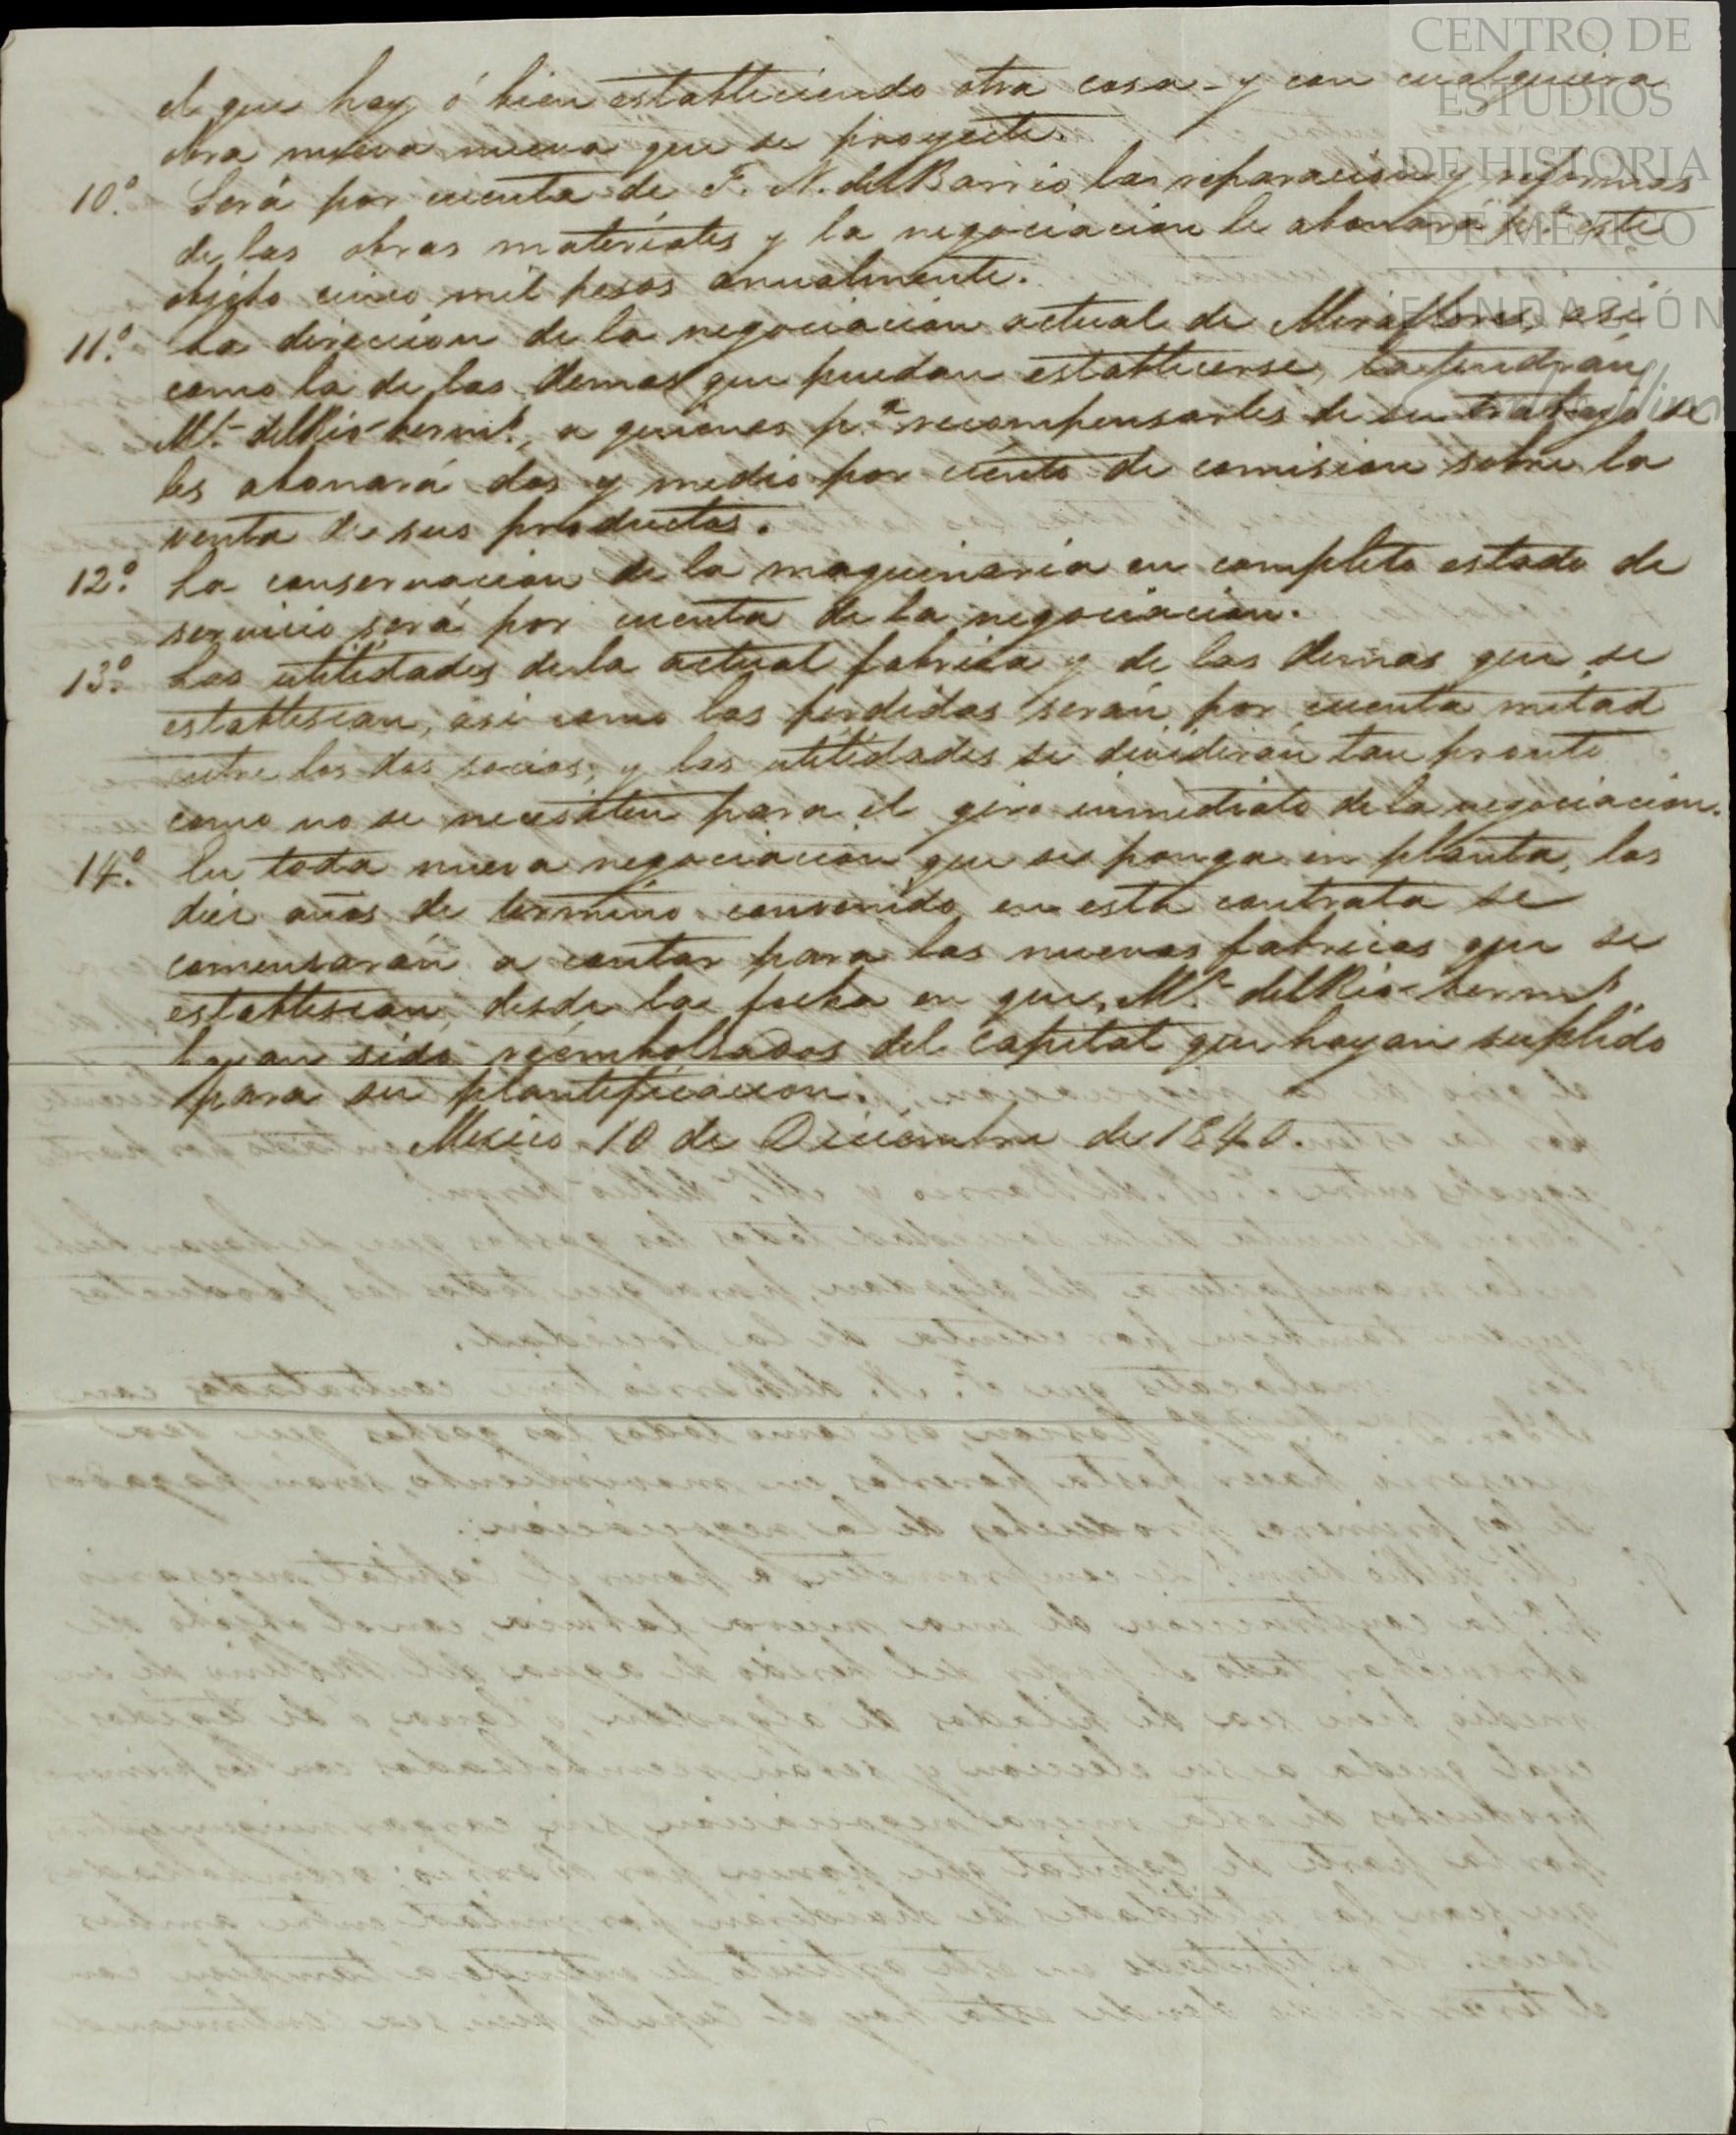 CENTRO DE
ESTUDIOS
DE HISTORIA
DE MÉXICO
FUNDACIÓN
el que hay ó bien estableciendo otra cosa - y con cualquiera
obra nueva nueva que se proyecte.
10.º Será por cuenta de F. N. del Barrio las reparacion y reformas
de las obras materiales y la negociacion le abonará pª este
objeto cinco mil pesos anualmente.
11.º La direccion de la negociacion actual de Miraflores, asi
como la de las demas que puedan establecerse, la tendrán
Mz. del Rio herms, a quienes pª recompensarles de su trabajo se
les abonará dos y medio por ciento de comision sobre la
venta de sus productos.
12.º La conservacion de la maquinaria en completo estado de
servicio será por cuenta de la negociacion.
13.º Las utilidades de la actual fabrica y de las demas que se
establescan, asi como las perdidas serán por cuenta mitad
entre los dos socios, y las utilidades se dividirán tan pronto
como no se necesiten para el giro inmediato de la negociacion.
14.º En toda nueva negociacion que se ponga en planta, los
diez años de termino convenido en esta contrata se
comensarán a contar para las nuevas fabricas que se
establescan, desde la fecha en que, Mz. del Rio herms
hayan sido reembolsados del capital que hayan suplido
para su plantificacion.
Mexico 10 de Diciembre de 1840.